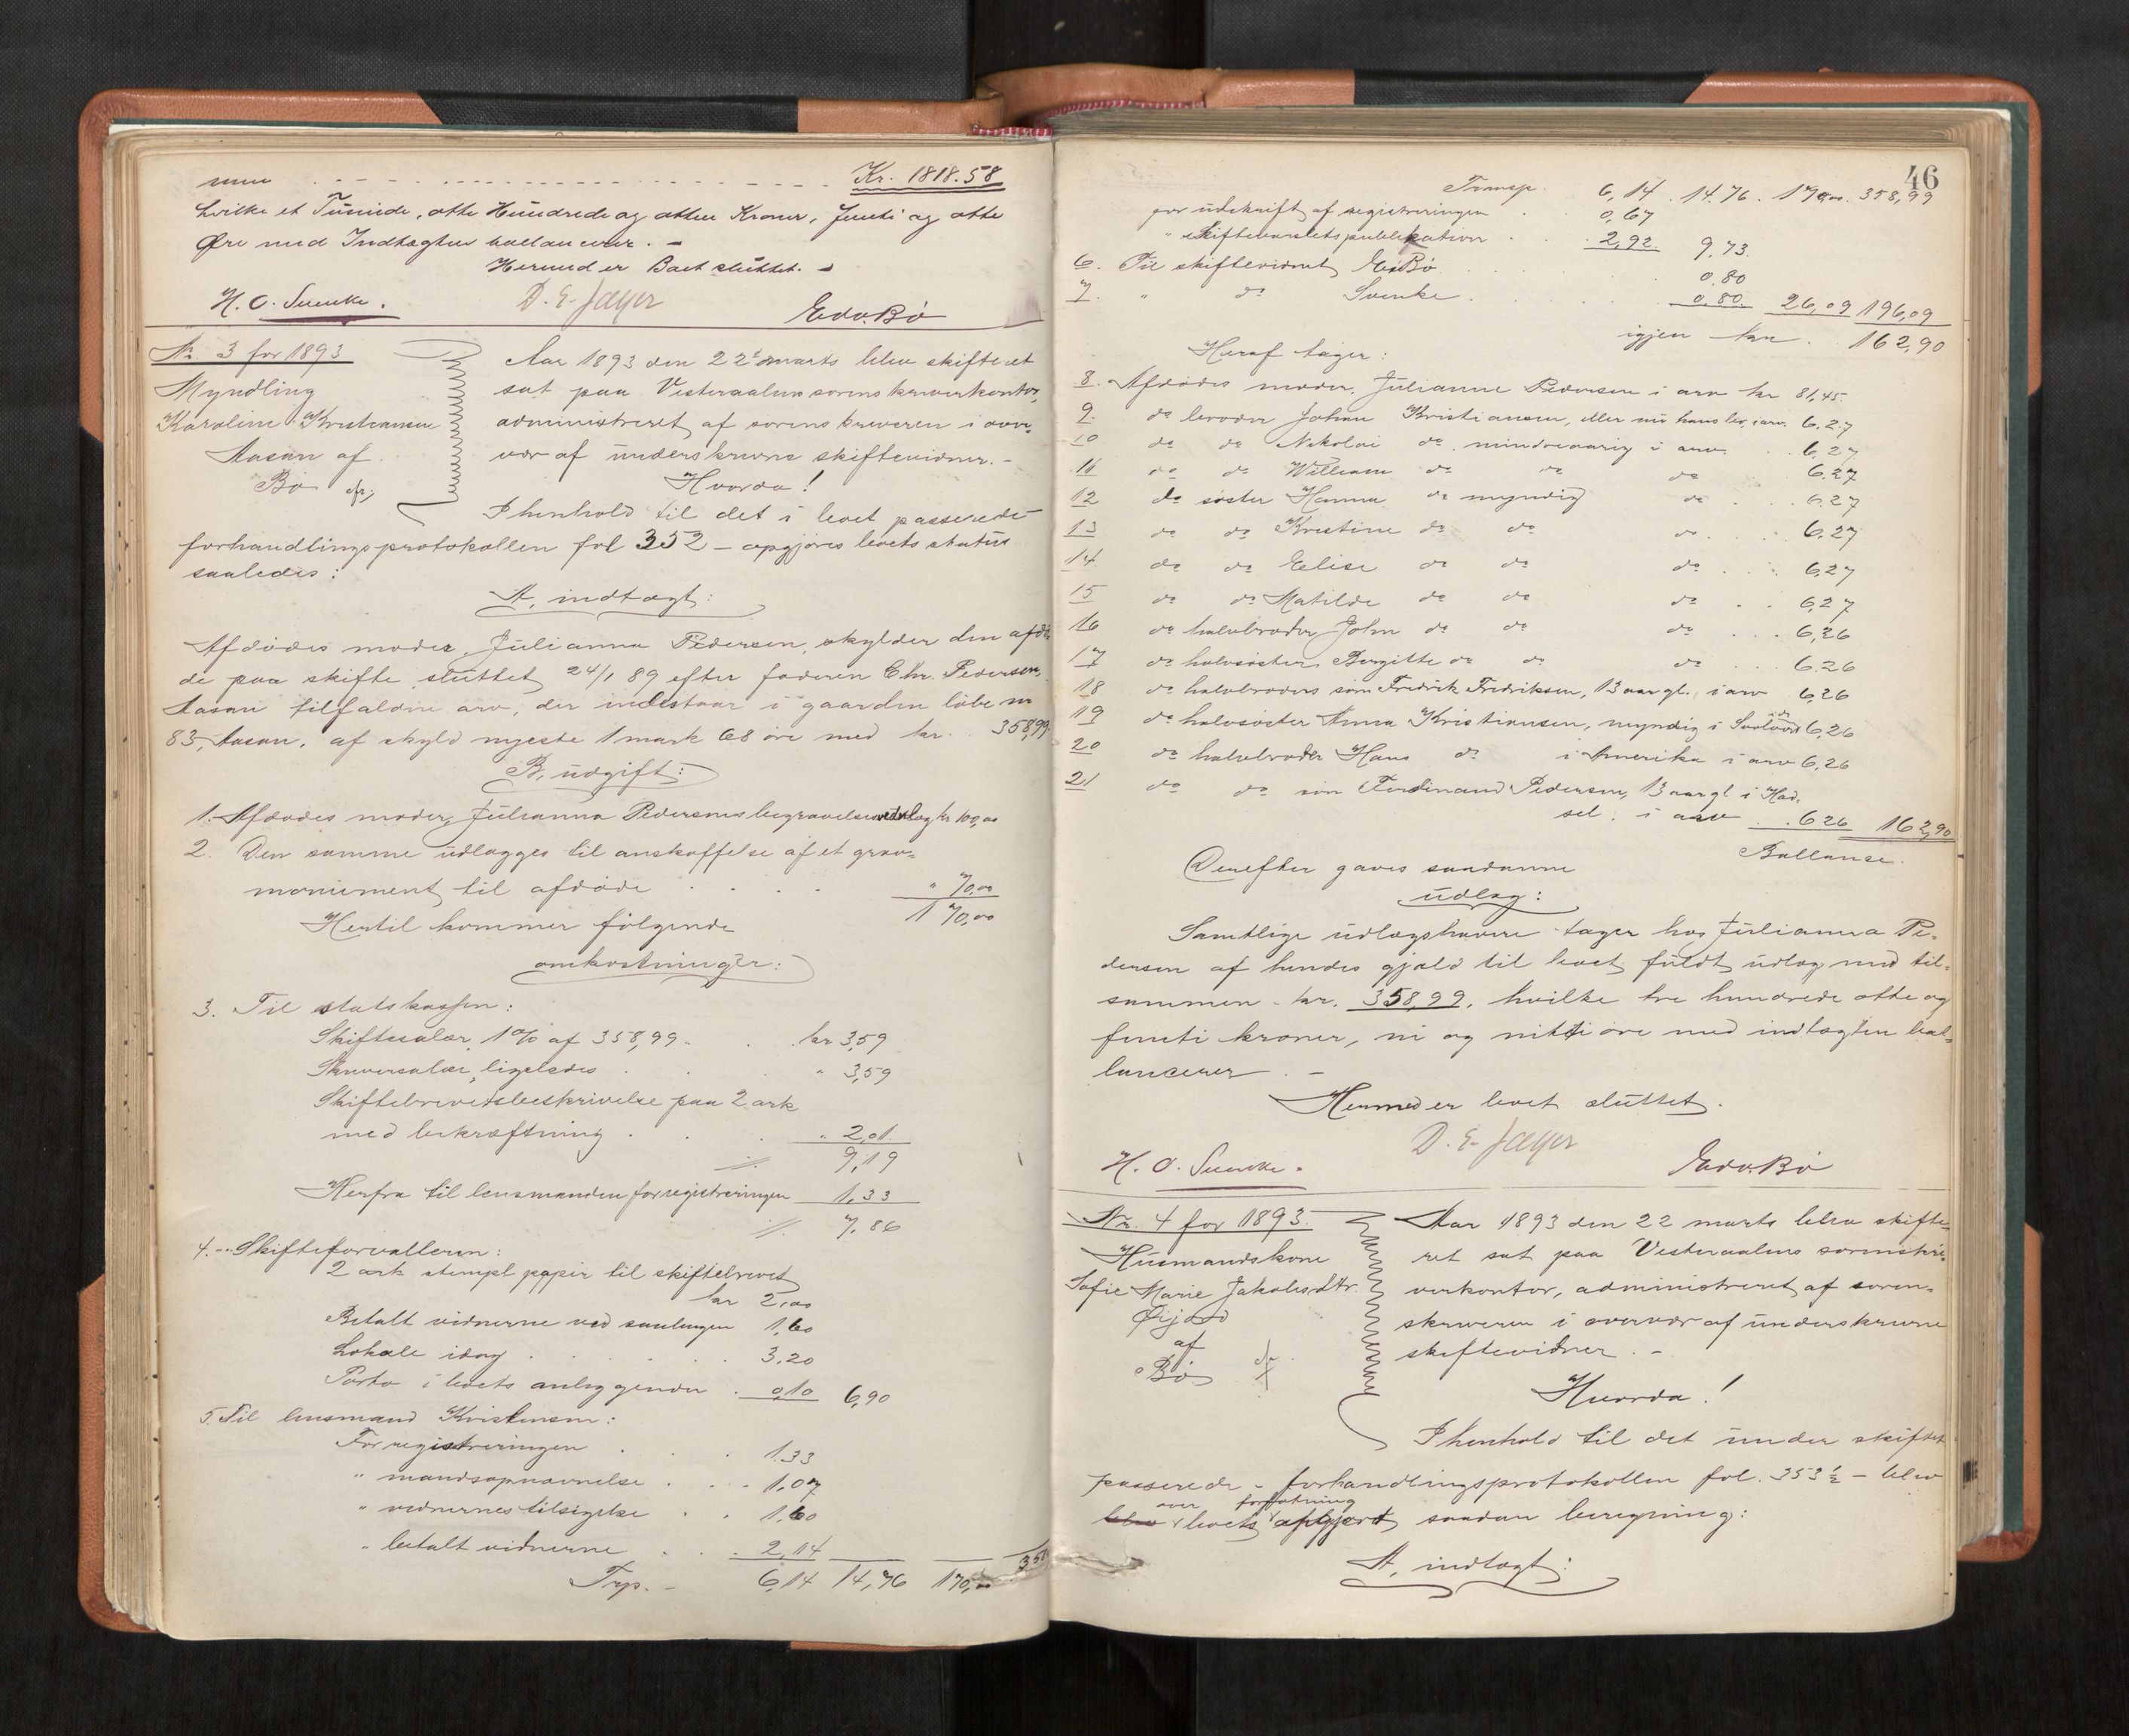 Kr. 1818.58
hvilke et Tusinde, otte Hundrede og atten Kroner, femti og otte
Øre med Indtægten ballancerer. –
Hermed er Boet sluttet. –
H. O. Svenke. D. E. Jæger Edv. Bö
Nr. 3 for 1893
Myndling
Karoline Kristiansen
Aasan af
Bø
Aar 1893 den 22de marts blev skifteret
sat paa Vesteraalens sorenskriverkontor,
administreret af sorenskriveren i over-
vær af underskrevne skiftevidner. –
Hvorda!
I henhold til det i boet passerede
forhandlingsprotokollen fol 352 – opgjøres boets status
saaledes:
A, indtægt:
Afdødes moder, Julianna Pedersen, skylder den afdø-
de paa skifte, sluttet 24/1 89 efter faderen Chr. Pedersen,
Aasan tilfaldne arv, der indestaar i gaarden løbe nr
83, Aasan, af skyld nyeste 1 mark 68 øre med kr. 358,99
B, udgift:
1. Afdødes moder, Julianna Pedersens begravelsesudlæg kr 100,00
2. Den samme udlægges til anskaffelse af et grav-
monument til afdøde . . . . " 70,00
170,00
Hertil kommer følgende
omkostninger:
3. Til statskassen:
Skiftesalær 1% af 358,99 . . kr 3,59
Skriversalær, ligeledes . . " 3,59
Skiftebrevets beskrivelse paa 2 ark
med bekræftning . . . " 2,01
9,19
Herfra til lensmanden for registreringen 1,33
7,86
4. Skifteforvalteren:
2 ark stempl. papir til skiftebrevet
kr 2,00
Betalt vidnerne ved samlingen 1,60
Lokale idag . . . . . 3,20
Porto i boets anliggender . 0,10 6,90
5. Til lensmand Kristensen:
For registreringen . . . 1.33
" mandsopnævnelse . . . 1,07
" vidnernes tilsigelse . . 1,60
" betalt vidnerne . . . 2,14
Trp. – 6,14 14,76 170,00 358
46
Transp. 6,14 . 14.76 . 170,00. 358,99
for udskrift af registreringen . 0,67
" skiftevarslets publikation . . . 2,92. 9,73
6. Til skiftevidnet E. Bø . . . . . 0,80
7. " do Svenke . . . . 0,80. 26,09 196,09
igjen kr. 162,90
Heraf tager:
8. Afdødes moder, Julianne Pedersen i arv kr 81,45.
9. do broder Johan Kristiansen, eller nu hans bo, i arv. 6.27
10 do do Nikolai do mindreaarig i arv. . . 6,27
11 do do William do do do 6.27
12 do søster Hanna do myndig do . . 6.27
13 do do Kristine do do do . . . 6.27
14 do do Elise do do do . . . 6,27
15 do do Matilde do do do . . 6,27
16 do halvbroder John do do do . . . 6,26
17 do halvsøster Bergitte do do do . . . 6.26
18 do halvbroders søn Fredrik Fredriksen, 13 aar gl., i arv 6,26
19 do halvsøster Anna Kristiansen, myndig i 6,26
20 do halvbroder Hans do i Amerika i arv 6.26
21 do do søn Ferdinand Pedersen, 13 aar gl i Had-
sel, i arv . . 6 26 162,90
Ballanse.
Derefter gaves saadanne
udlæg:
Samtlige udlægshavere tager hos Julianna Pe-
dersen af hendes gjæld til boet fuldt udlæg med til-
sammen kr. 358,99, hvilke tre hundrede otte og
femti kroner, ni og nitti øre med indtægten bal-
lancerer . –
Hermed er boet sluttet.
D. E. Jæger
H. O. Svenke. Edv. Bö
Nr. 4 for 1893.
Husmandskone
Sofie Marie Jakobsdtr.
Ørjord
af
Bø
Aar 1893 den 22 marts blev skifte-
ret sat paa Vesteraalens sorenskri-
verkontor, administreret af soren-
skriveren i overvær af underskrevne
skiftevidner. –
Hvorda!
I henhold til det under skiftet
passerede – forhandlingsprotokollen fol. 353½ – blev
over forfatning
blev boets opgjort saadan beregning:
A, indtægt: